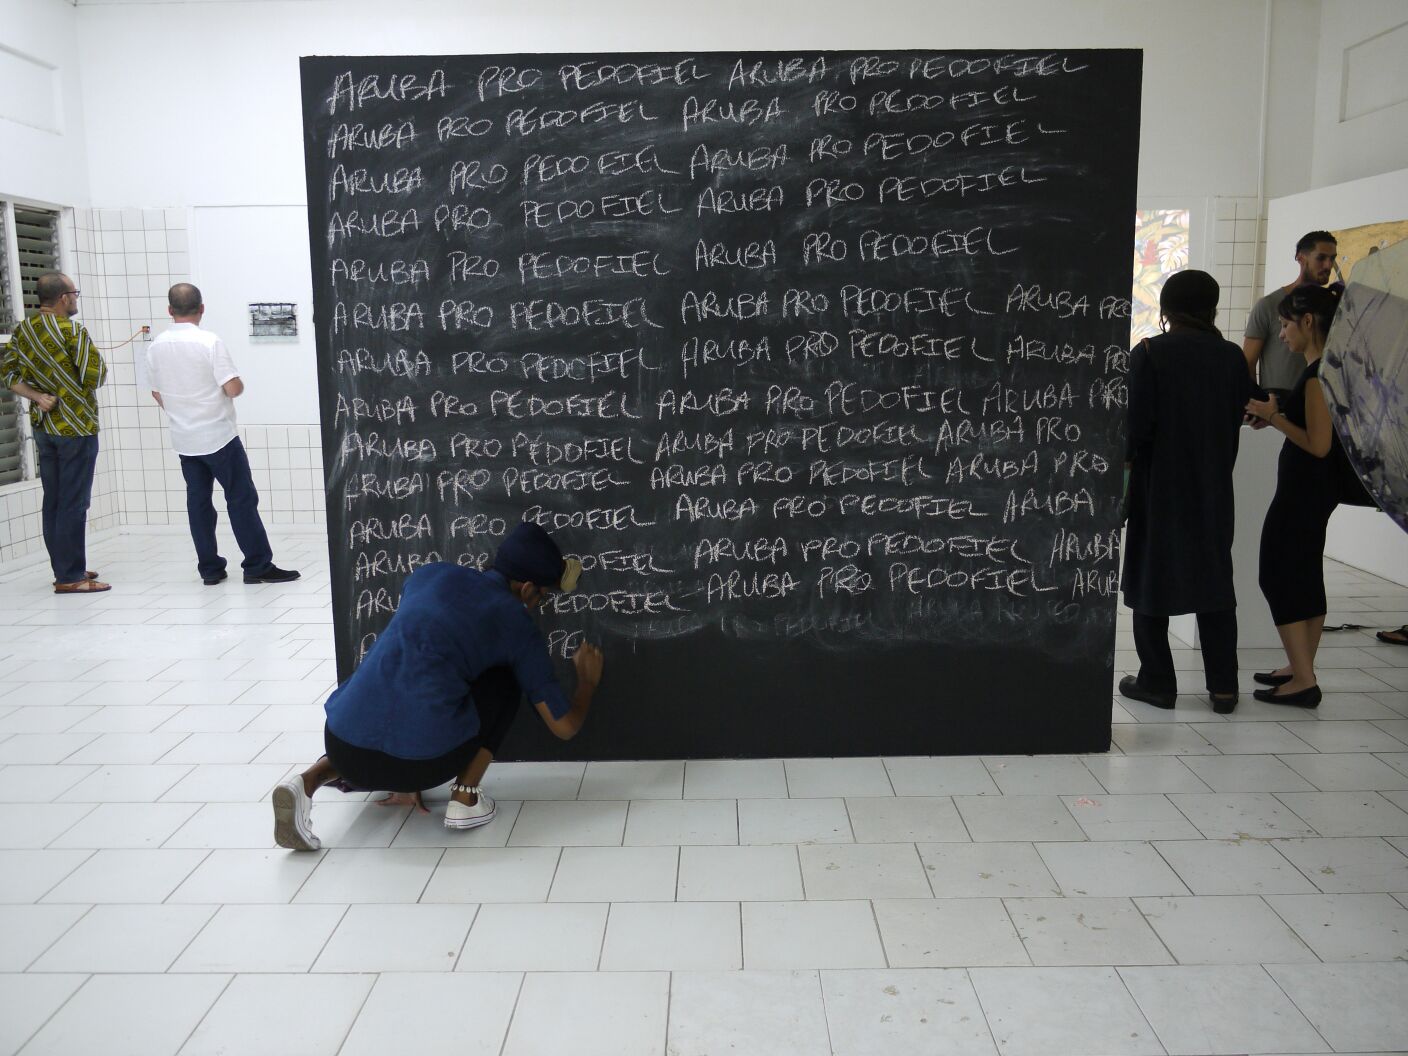 ARUBA PRO PEDOFIEL ARUBA PRO PEDOFIEL
ARUBA PRO PEDOFIEL ARUBA PRO PEDOFIEL
ARUBA PRO PEDOFIEL ARUBA PRO PEDOFIEL
ARUBA PRO PEDOFIEL ARUBA PRO PEDOFIEL
ARUBA PRO PEDOFIEL ARUBA PRO PEDOFIEL
ARUBA PRO PEDOFIEL ARUBA PRO PEDOFIEL ARUBA PRO
ARUBA PRO PEDOFIEL ARUBA PRO PEDOFIEL ARUBA PRO
ARUBA PRO PEDOFIEL ARUBA PRO PEDOFIEL ARUBA PRO
ARUBA PRO PEDOFIEL ARUBA PRO PEDOFIEL ARUBA PRO
ARUBA PRO PEDOFIEL ARUBA PRO PEDOFIEL ARUBA PRO
ARUBA PRO PEDOFIEL ARUBA PRO PEDOFIEL ARUBA
ARUBA PRO PEDOFIEL ARUBA PRO PEDOFIEL ARUBA
ARU PEDOFIEL ARUBA PRO PEDOFIEL ARUB
PE